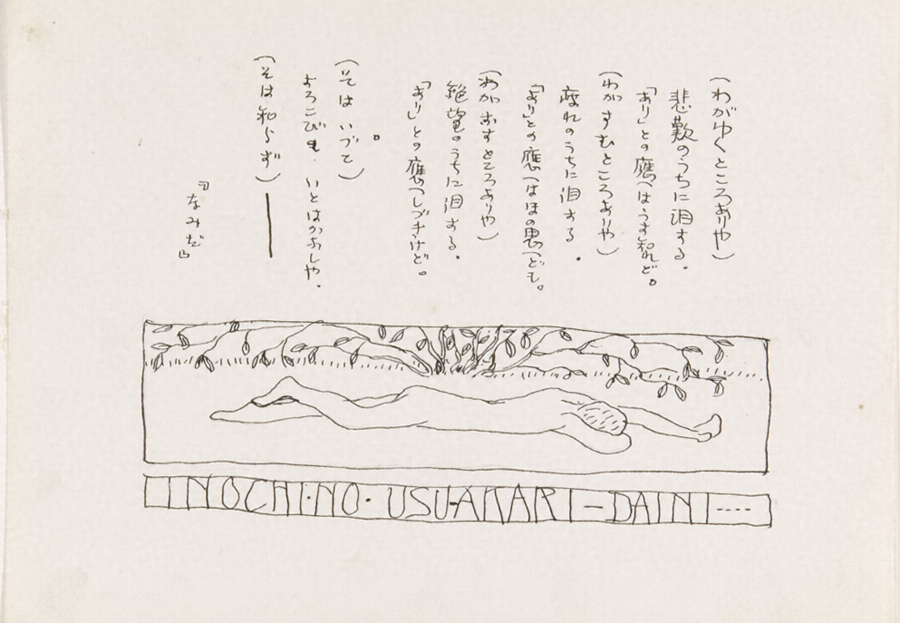 (わがゆくところありや)
悲歎のうちに泪する.
「あり」との應へはうす知れど。
(わがすむところありや)
疲れのうちに泪する.
「あり」との應へはほの思へども。
(わがおすところありや)
絶望のうちに泪する.
「あり」との應へしづきけど。
(そは いづて)
よろこびも.いとはかなしや.
(そは知らず)——
『なみだ』
INOCHI·NO·USU-AKARI-DAINI----